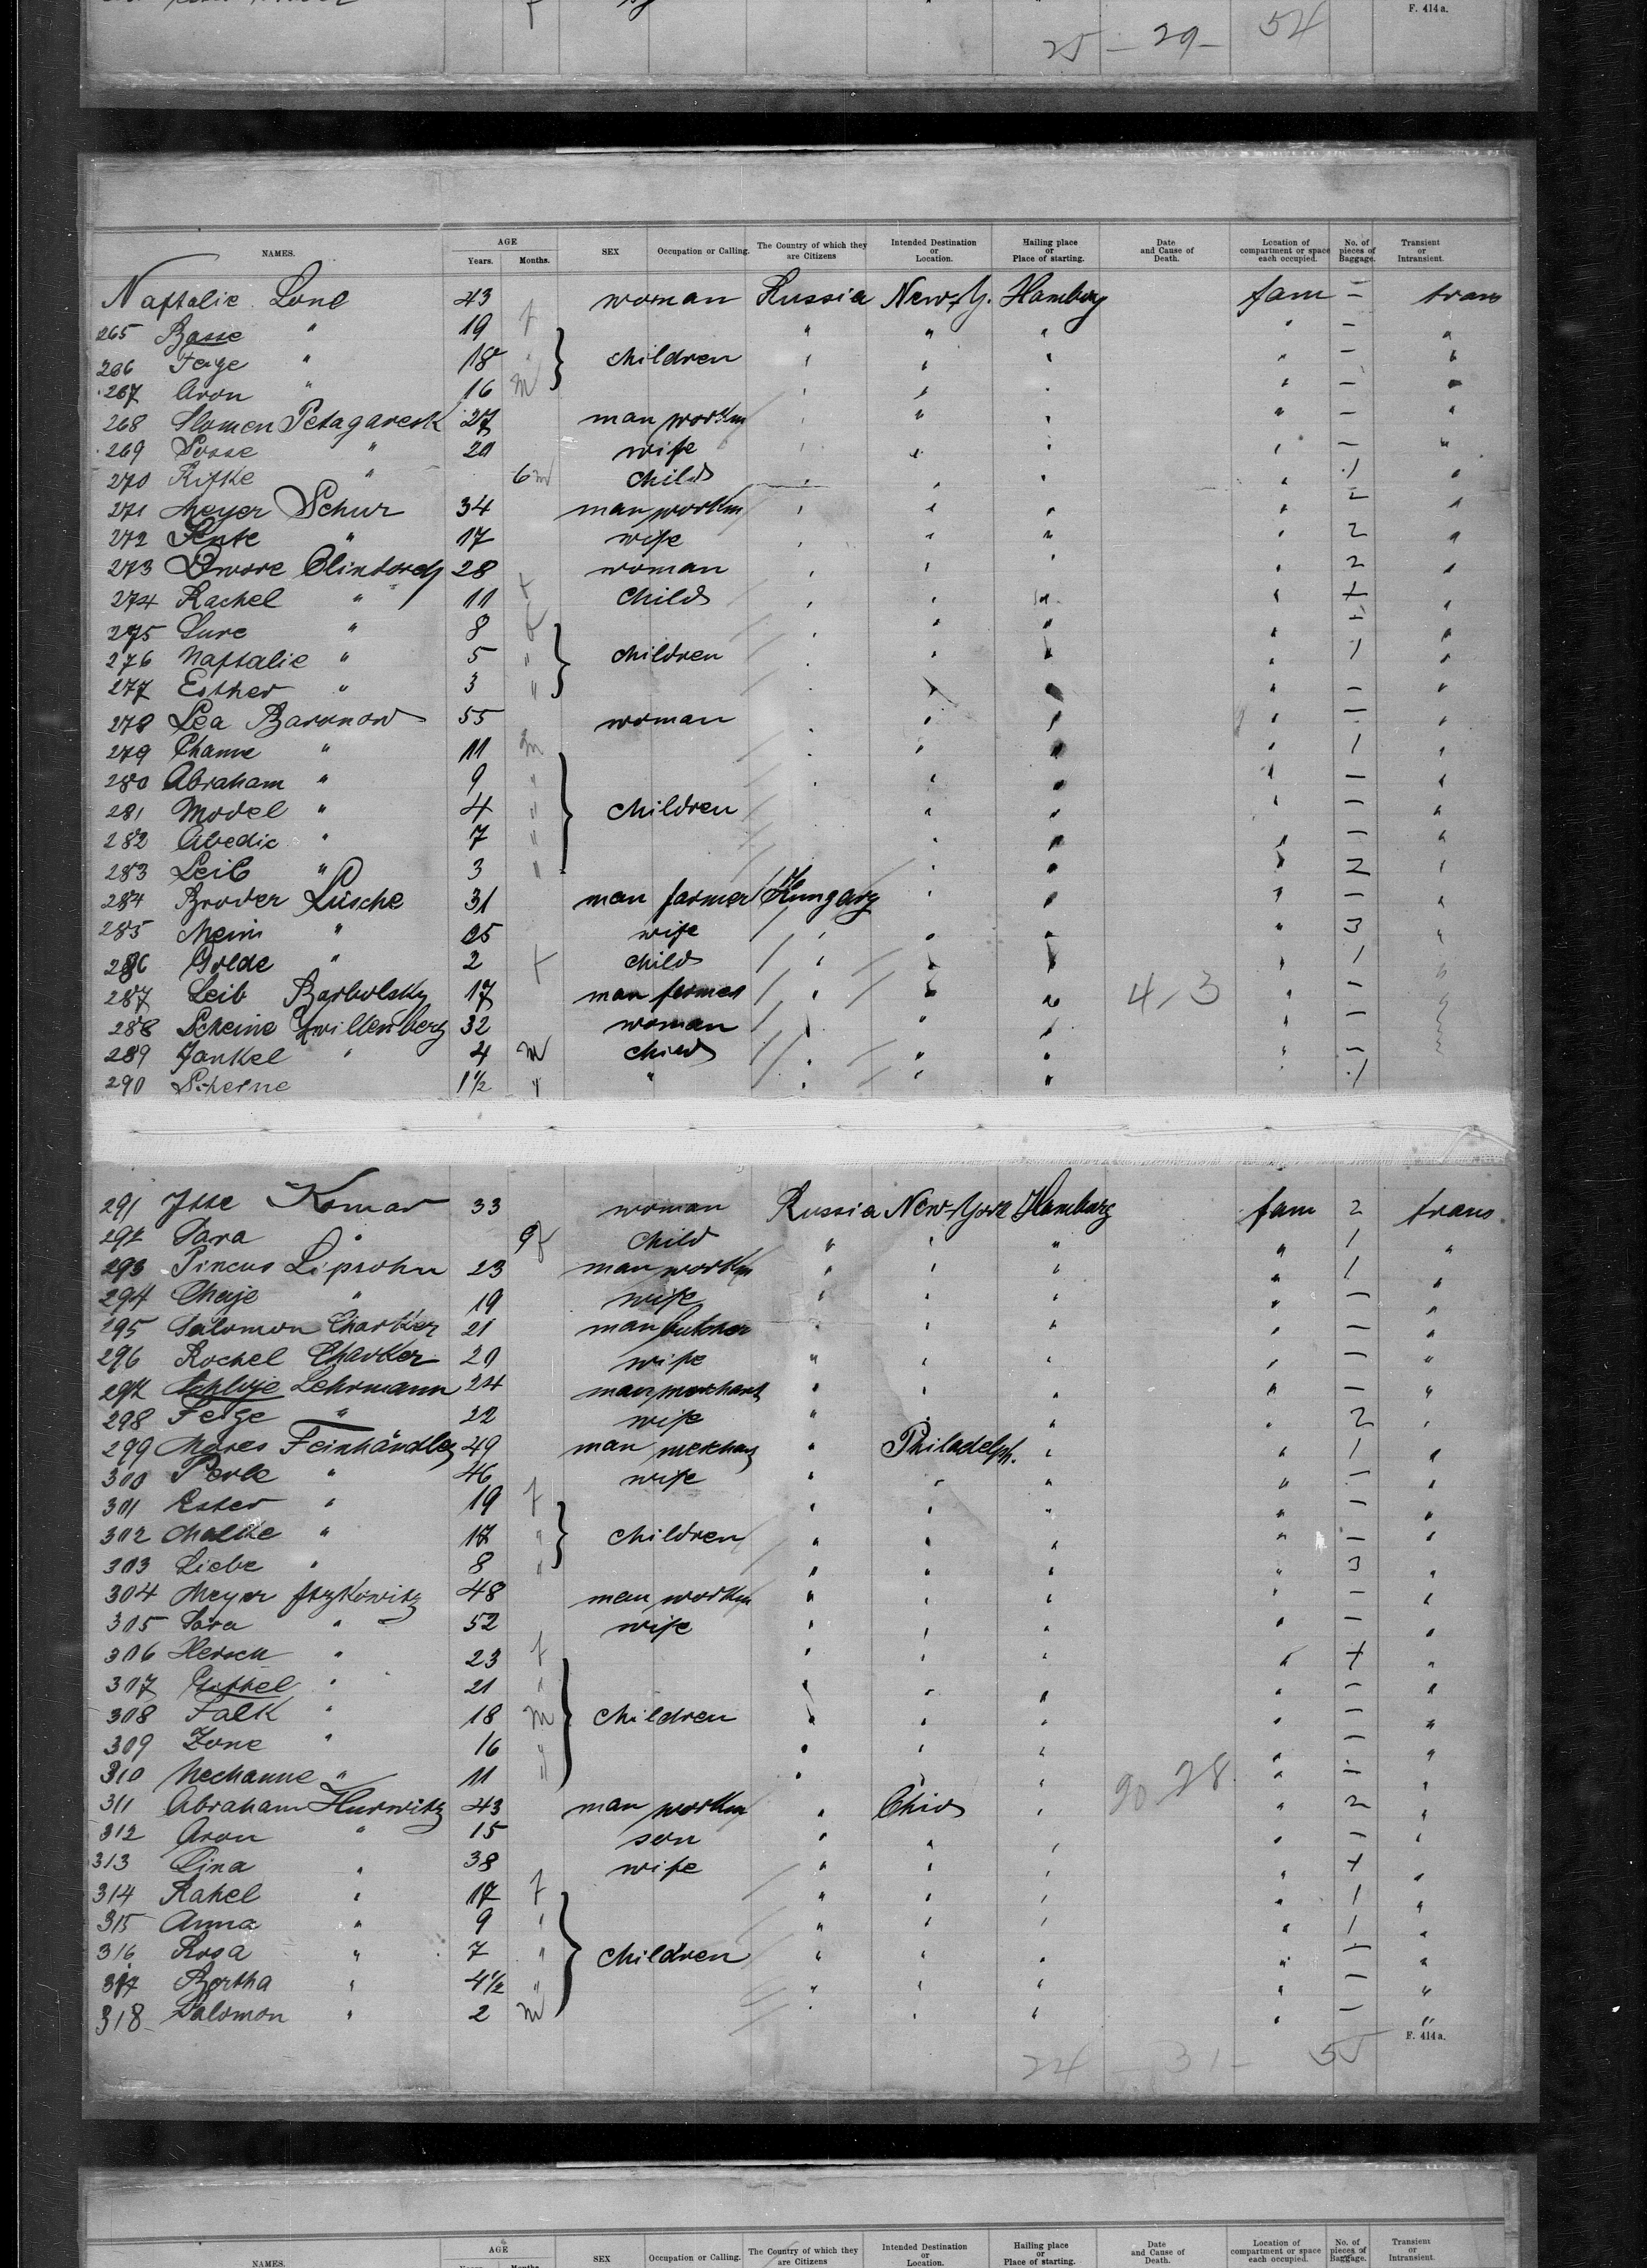 F. 414a.
25 - 29 - 54
NAMES. AGE Years. Months. SEX Occupation or Calling. The Country of which they are Citizens Intended Destination or Location. Hailing place or Place of starting. Date and Cause of Death. Location of compartment or space each occupied. No. of pieces of Baggage. Transient or Intransient.
Naftalie Lone 43 woman Russia New-Y. Hamburg fam - trans
265 Basse " 19 f " " " " - "
266 Feige " 18 " children " " " " - "
267 Aron " 16 m " " " " - "
268 Slomen Petagaresk 27 man workm " " " " - "
269 Sosse " 20 wife " " " " - "
270 Rifke " 6 m child " " " " 1 "
271 Meyer Schur 34 man workm " " " " 2 "
272 " 17 wife " " " " 2 "
273 Dwore 28 woman " " " " 2 "
274 Rachel " 11 f child " " " " + "
275 Sure " 8 f " " " " - "
276 Naftalie " 5 " children " " " " 1 "
277 Esther " 3 " " " " " - "
278 Lea Baronow 55 woman " " " " - "
279 Channe " 11 m " " " " 1 "
280 Abraham " 9 " " " " " - "
281 Model " 4 " children " " " " - "
282 Abedie " 7 " " " " " - "
283 Leib " 3 " " " " " 2 "
284 Broder Lüsche 31 man farmer Hungary " " " - "
285 Meini " 25 wife " " " " 3 "
286 Golde " 2 f child " " " " 1 "
287 Leib Barbolsky 17 man farmer " " " 4-3 " - "
288 Scheine Zwillenberg 32 woman " " " " - "
289 Jankel " 4 m child " " " " - "
290 Scheine 1½ " " " " " " 1
291 Itte Komar 33 woman Russia New-York Hamburg fam 2 trans
292 Sara " 9 f child " " " " 1 "
293 Pincus Lipsohn 23 man workm " " " " 1 "
294 Chaje " 19 wife " " " " - "
295 Salomon Charker 21 man butcher " " " " - "
296 Rochel Charker 20 wife " " " " - "
297 Lehrmann 24 man merchant " " " " - "
298 Feige " 22 wife " " " " 2 "
299 Moses Feinhändler 49 man merchant " Philadelph. " " 1 "
300 Perle " 46 wife " " " " - "
301 Ester " 19 f " " " " - "
302 Malke " 17 " children " " " " - "
303 Liebe " 8 " " " " " 3 "
304 Meyer Itzkowitz 48 man workm " " " " - "
305 Sara " 52 wife " " " " - "
306 Hersch " 23 f " " " " + "
307 Gittel " 21 " " " " " - "
308 Falk " 18 m children " " " " - "
309 Zone " 16 " " " " " - "
310 Nechanne " 11 " " " " 90-28. " - "
311 Abraham Hurwitz 43 man workm " Ohio " " 2 "
312 Aron " 15 son " " " " - "
313 Lina " 38 wife " " " " + "
314 Rahel " 17 f " " " " 1 "
315 Anna " 9 " " " " " 1 "
316 Rosa " 7 " children " " " " - "
317 Bertha " 4½ " " " " " - "
318 Salomon " 2 m " " " " - "
F. 414a.
24 - 31 - 55
NAMES. AGE Years. Months. SEX Occupation or Calling. The Country of which they are Citizens Intended Destination or Location. Hailing place or Place of starting. Date and Cause of Death. Location of compartment or space each occupied. No. of pieces of Baggage. Transient or Intransient.